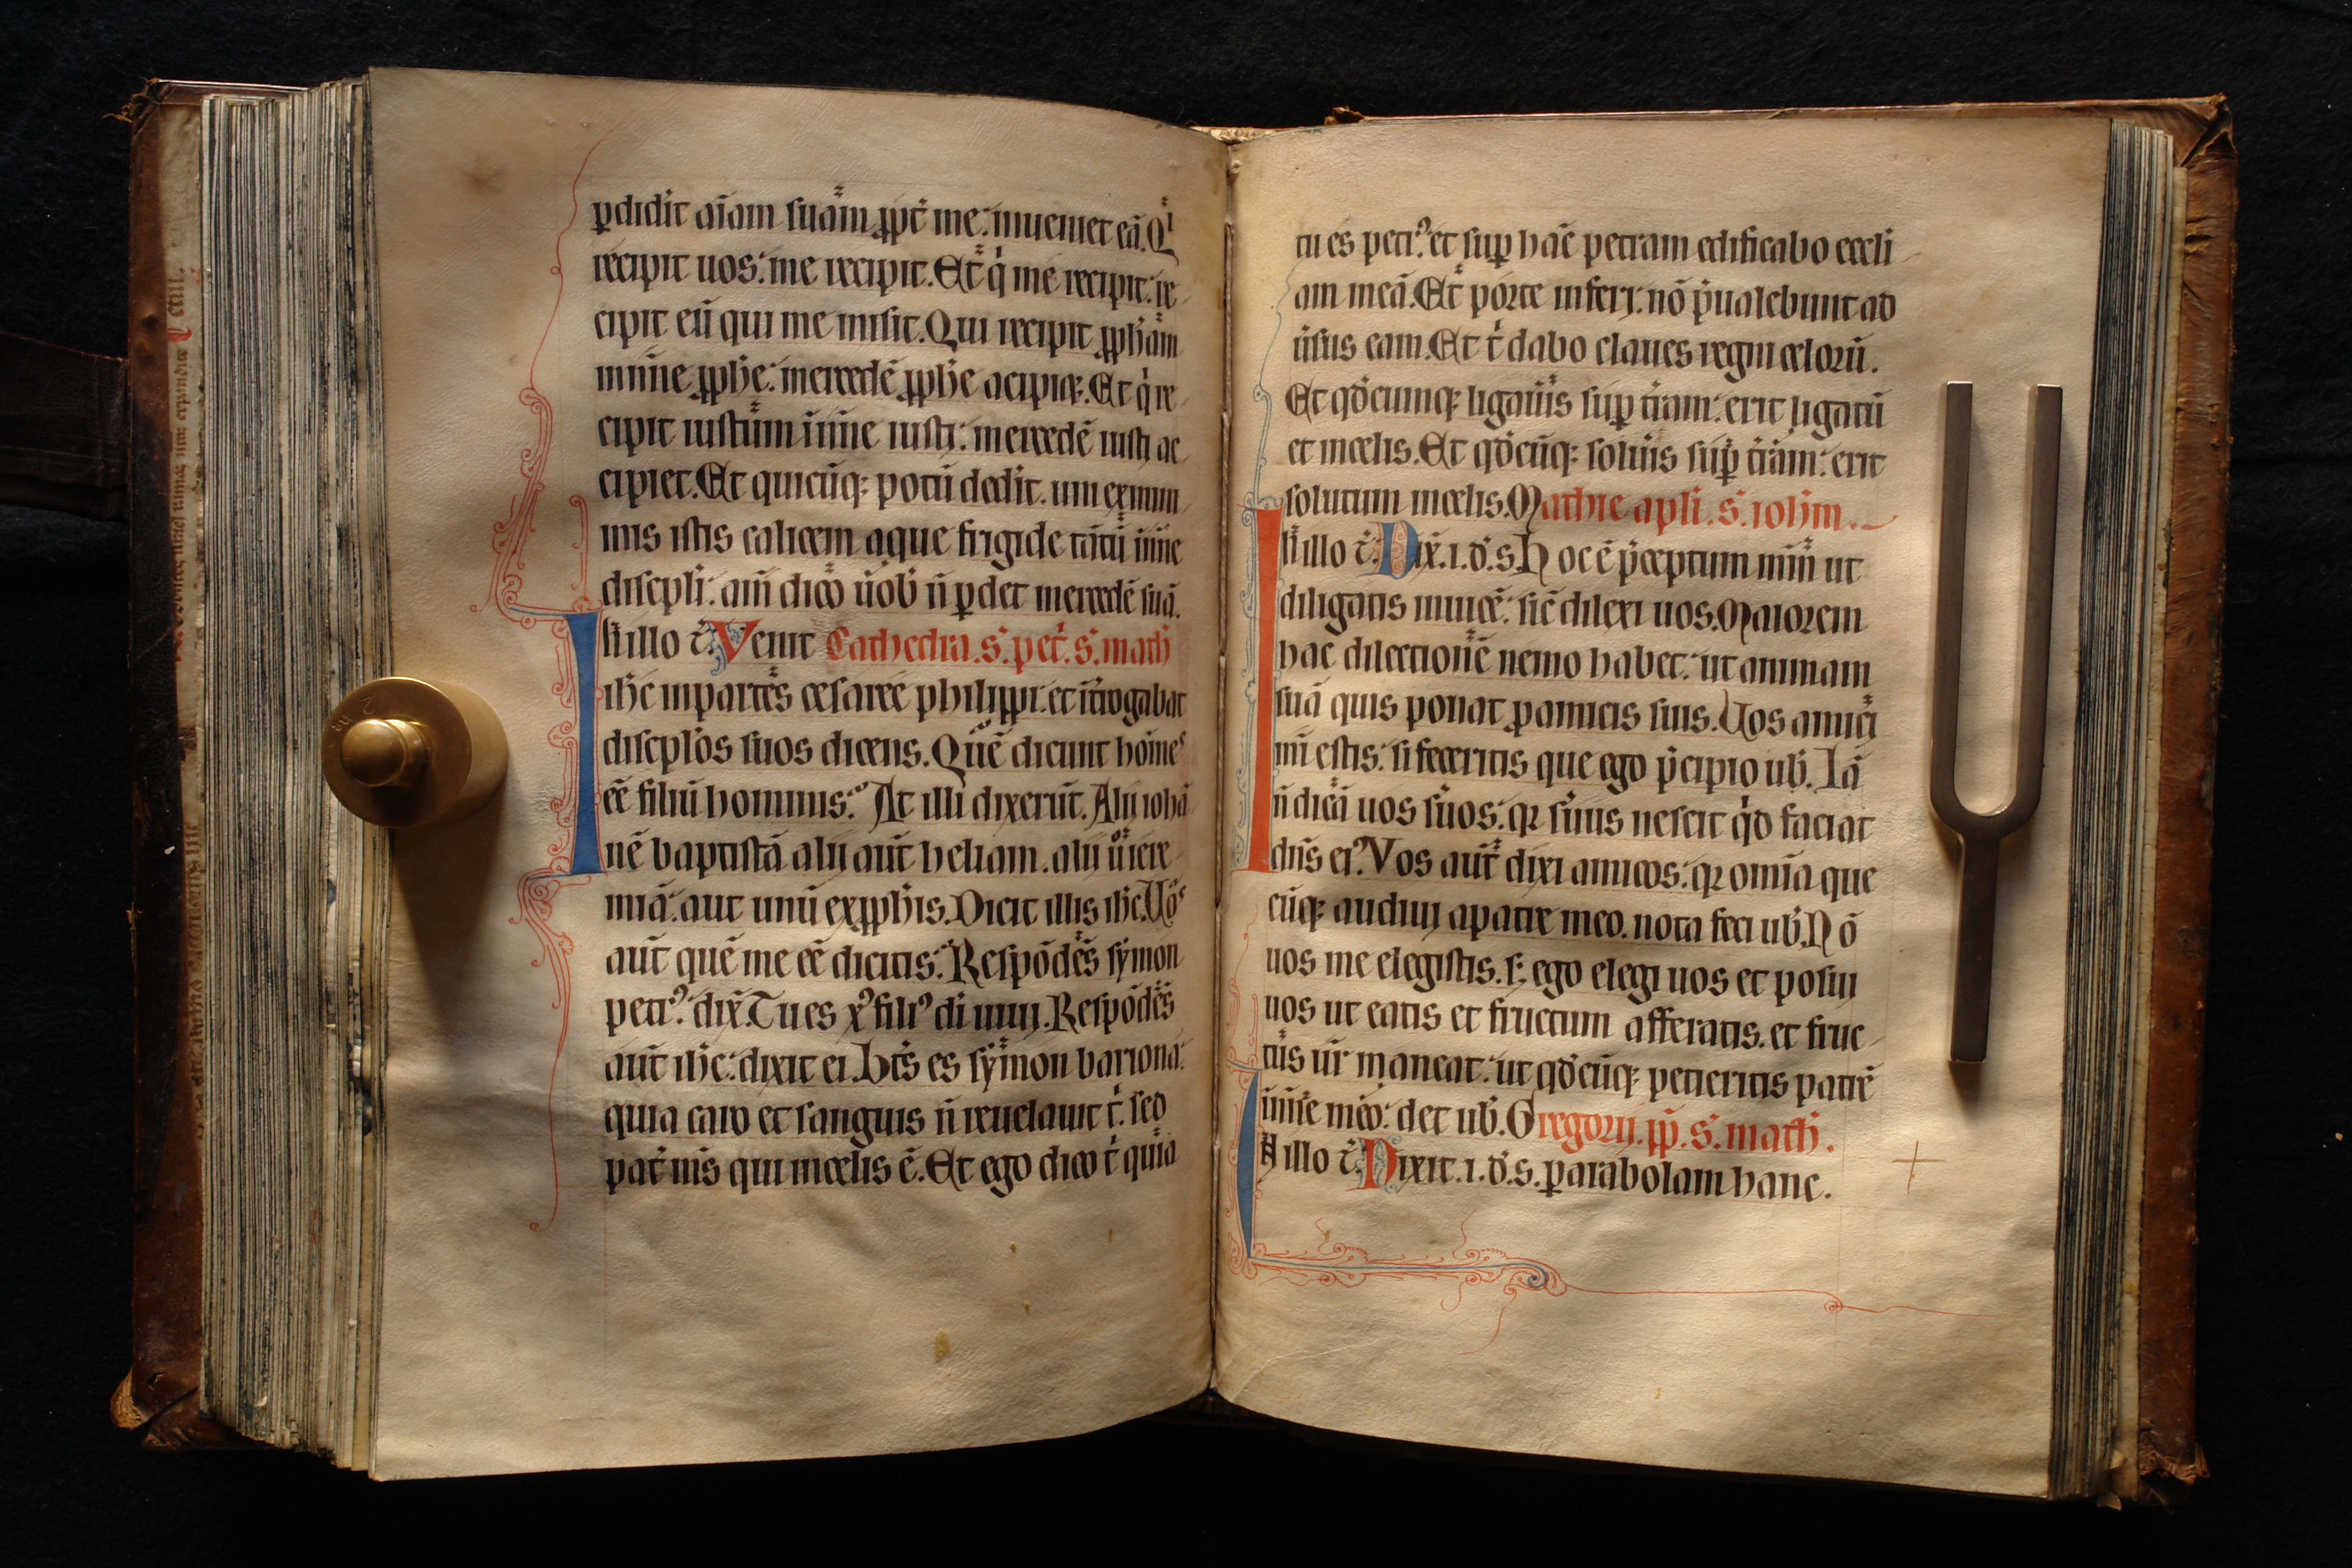 ꝑdidit aīam suā̃m ꝓpt̄ me: inueniet eā. Qⁱ
recipit uos: me recipit. Et̃ qͥ me recipit: re
cipit eū qui me misit. Qui recipit ꝓph̄am
in nīne ꝓph̄e: mercedē ꝓph̄e accipiet. Et qͥ re
cipit iustum ī nīe iusti: mercedē iusti ac
cipiet. Et quicūqꝫ potū dedit. uni ex mini
mis istis calicem aque frigide tātū ī nīe
discipli: am̄ dico uob̄ n̄ ꝑdet mercedē suā.
In illo t̄. Venit Cathedra. s̄. pet̄. s̄. math̄
ih̄c in partes cesaree philippi. et īt̄rogabat
disciplos suos dicens. Quē dicunt hoīes
eē filiū hominis: At illi dixerūt. Alii iohā
nē baptistā alii aut̄ heliam. alii u̇̄ iere
miā: aut unū ex ꝓph̄is. Dicit illis ih̄c. Uos
aut̄ quē me eē dicitis: Respōdēs symon
petrꝰ. dix̄. Tu es xꝰ filiꝰ di uiui. Respōdēs
aut̄ ih̄c: dixit ei. Bt̄s es symon bariona:
quia caro et sanguis n̄ reuelauit t̄. sed
pat̄ ms̄ qui in celis ē. Et ego dico t̄ quia
tu es petrꝰ. et suꝑ hāc petram edificabo eccli
am meā. Et porte inferi: nō p̄ualebunt ad
ūsus eam. Et t̄ dabo claues regni celorū.
Et qd̄cumqꝫ ligaūis suꝑ t̄ram: erit ligatū
et in celis. Et qd̄cūqꝫ solūis suꝑ t̄ram: erit
solutum in celis. Mathie apli. s̄. ioh̄m.
In illo t̄. Dix̄. i. d̄. s. Hoc ē p̄ceptum mm̄ ut
diligatis inuicē: sic dilexi uos. Maiorem
hāc dilectionē nemo habet: ut animam
suā quis ponat ꝑ amicis suis. Uos amici
mī estis: si feceritis que ego p̄cipio ub̄. Iā
n̄ dicā uos s̄uos: qꝛ s̄uus nescit qͥd faciat
dn̄s eiꝰ. Vos aut̄ dixi amicos: qꝛ omīa que
cūqꝫ audiui a patre meo. nota feci ub̄. Nō
uos me elegistis. sꝫ ego elegi uos et posui
uos ut eatis et fructum afferatis. et fruc
tus ur̄ maneat: ut qd̄cūqꝫ petieritis patrē
ī nīe meo: det ub̄. Gregorii. pp̄. s̄. math̄.
In illo t̄. Dixit. i. d̄. s. ꝑarabolam hanc.